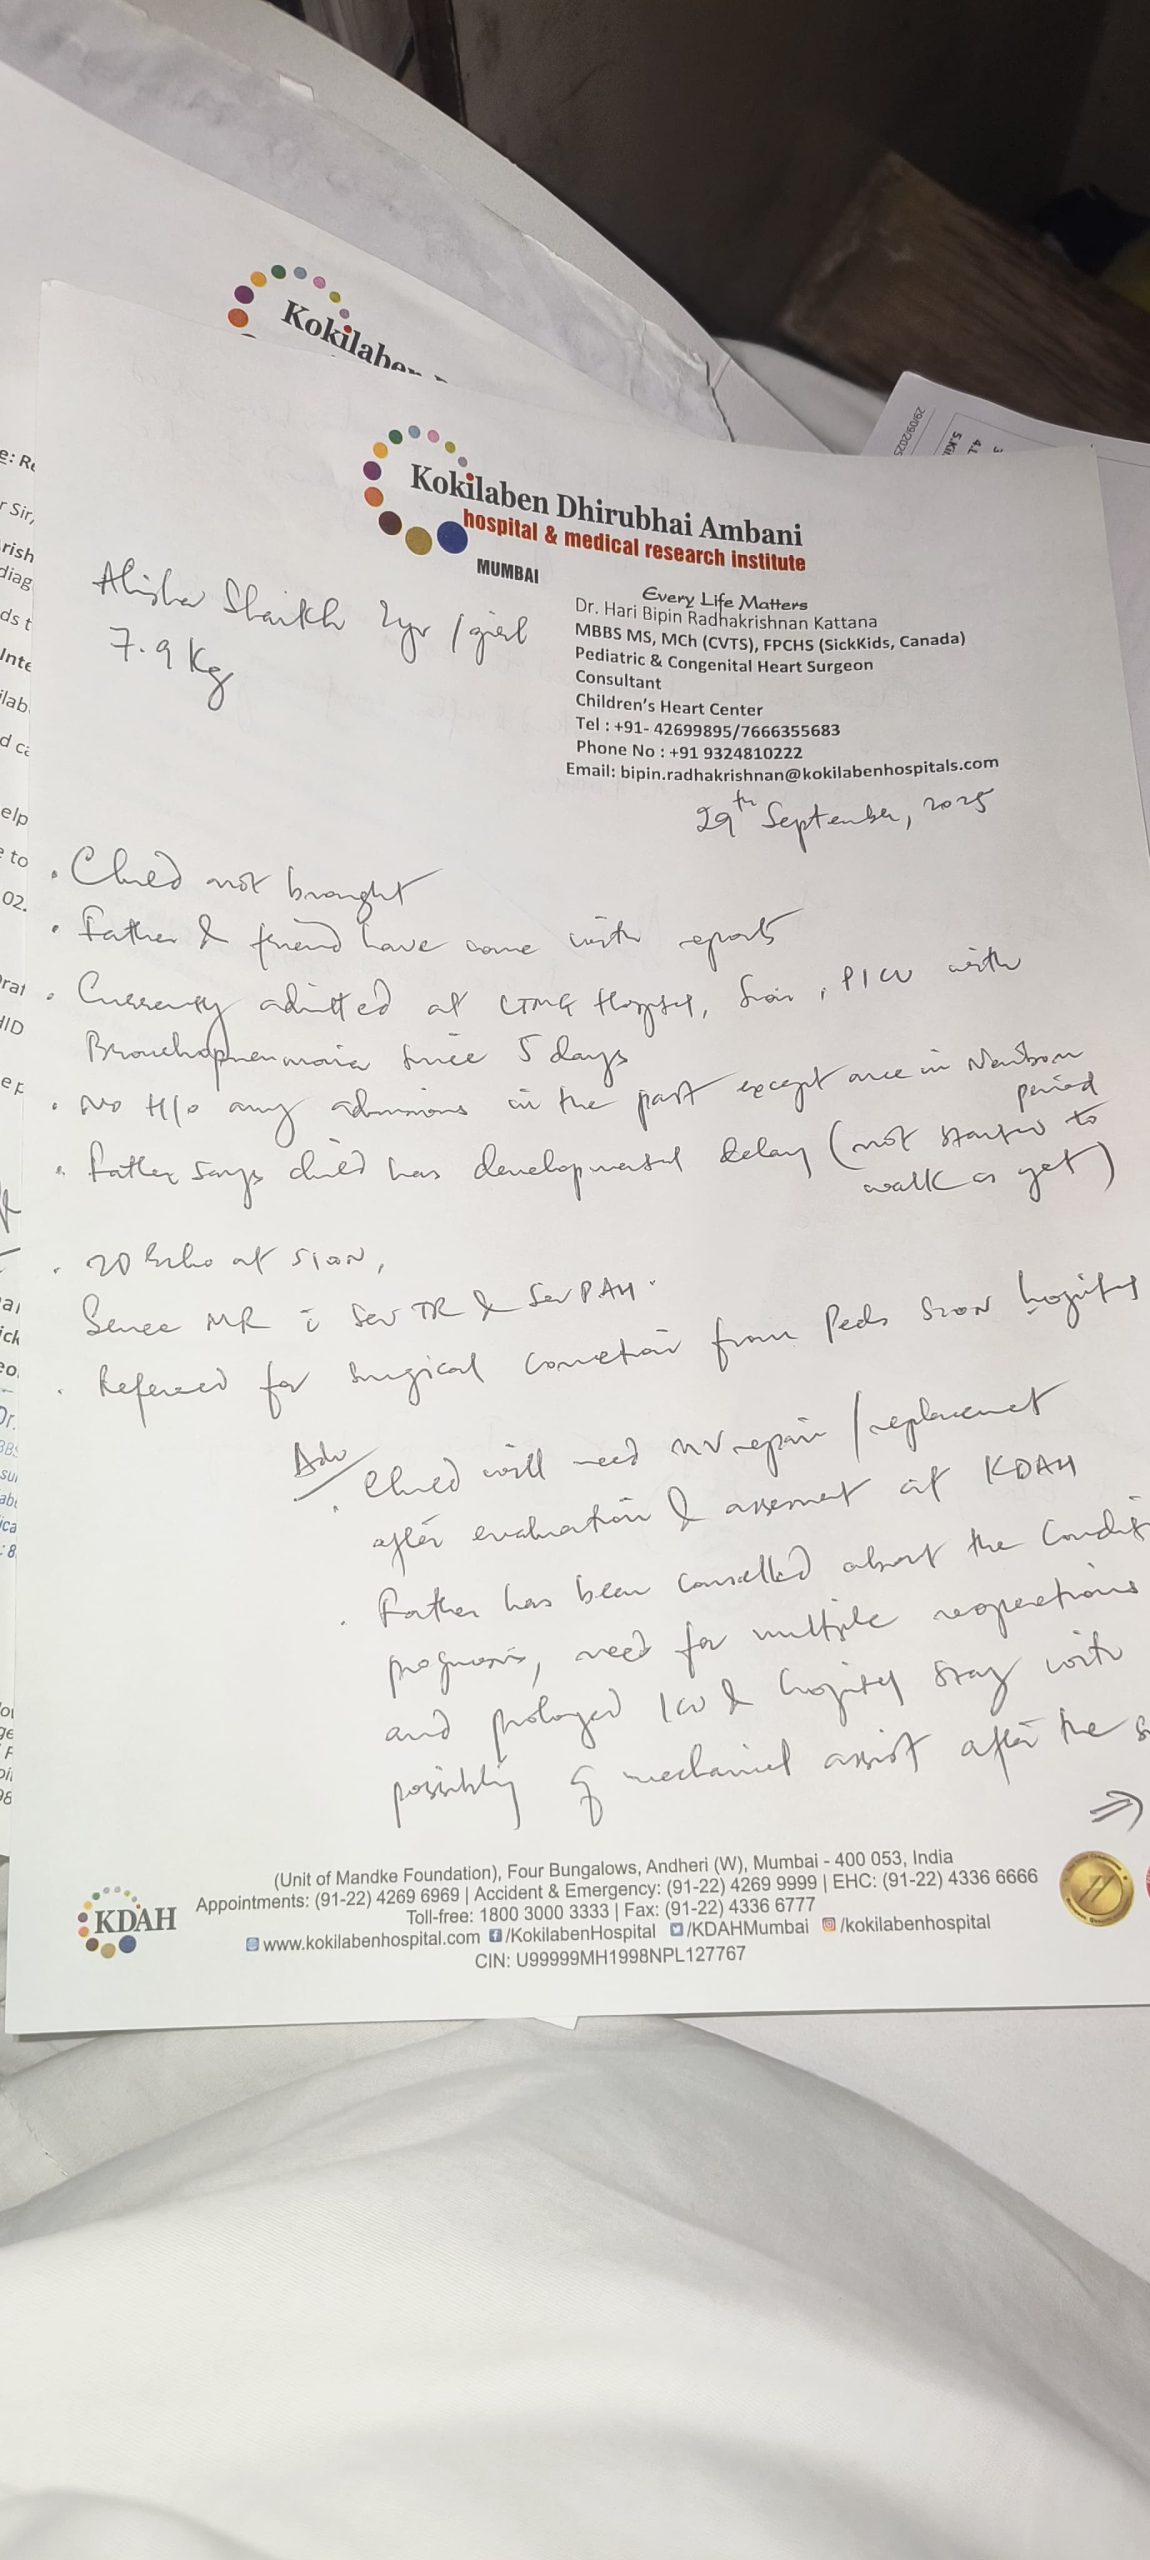 Kokilaben
Kokilaben Dhirubhai Ambani
hospital & medical research institute
MUMBAI
Every Life Matters
Dr. Hari Bipin Radhakrishnan Kattana
MBBS MS, MCh (CVTS), FPCHS (SickKids, Canada)
Pediatric & Congenital Heart Surgeon
Consultant
Children's Heart Center
Tel : +91- 42699895/7666355683
Phone No : +91 9324810222
Email: bipin.radhakrishnan@kokilabenhospitals.com
Alisha Shaikh 2yr / girl
7.9 Kg
29th September, 2025
. Child not brought
. Father & friend have come with reports
. Currently admitted at LTMG Hospital, Sion, PICU with
Bronchopneumonia since 5 days
. No H/o any admissions in the past except once in Newborn
period
. Father says child has developmental delay (not started to
walk as yet)
. 2D Echo at SION,
Severe MR c Sev TR & Sev PAH.
. Referred for surgical correction from Peds SION hospital
Adv
. Child will need MV repair / replacement
after evaluation & assessment at KDAH
. Father has been counselled about the
prognosis, need for multiple reoperations
and prolonged ICU & hospital stay with
possibility of mechanical assist after the
⇒
KDAH
(Unit of Mandke Foundation), Four Bungalows, Andheri (W), Mumbai - 400 053, India
Appointments: (91-22) 4269 6969 | Accident & Emergency: (91-22) 4269 9999 | EHC: (91-22) 4336 6666
Toll-free: 1800 3000 3333 | Fax: (91-22) 4336 6777
www.kokilabenhospital.com /KokilabenHospital /KDAHMumbai /kokilabenhospital
CIN: U99999MH1998NPL127767